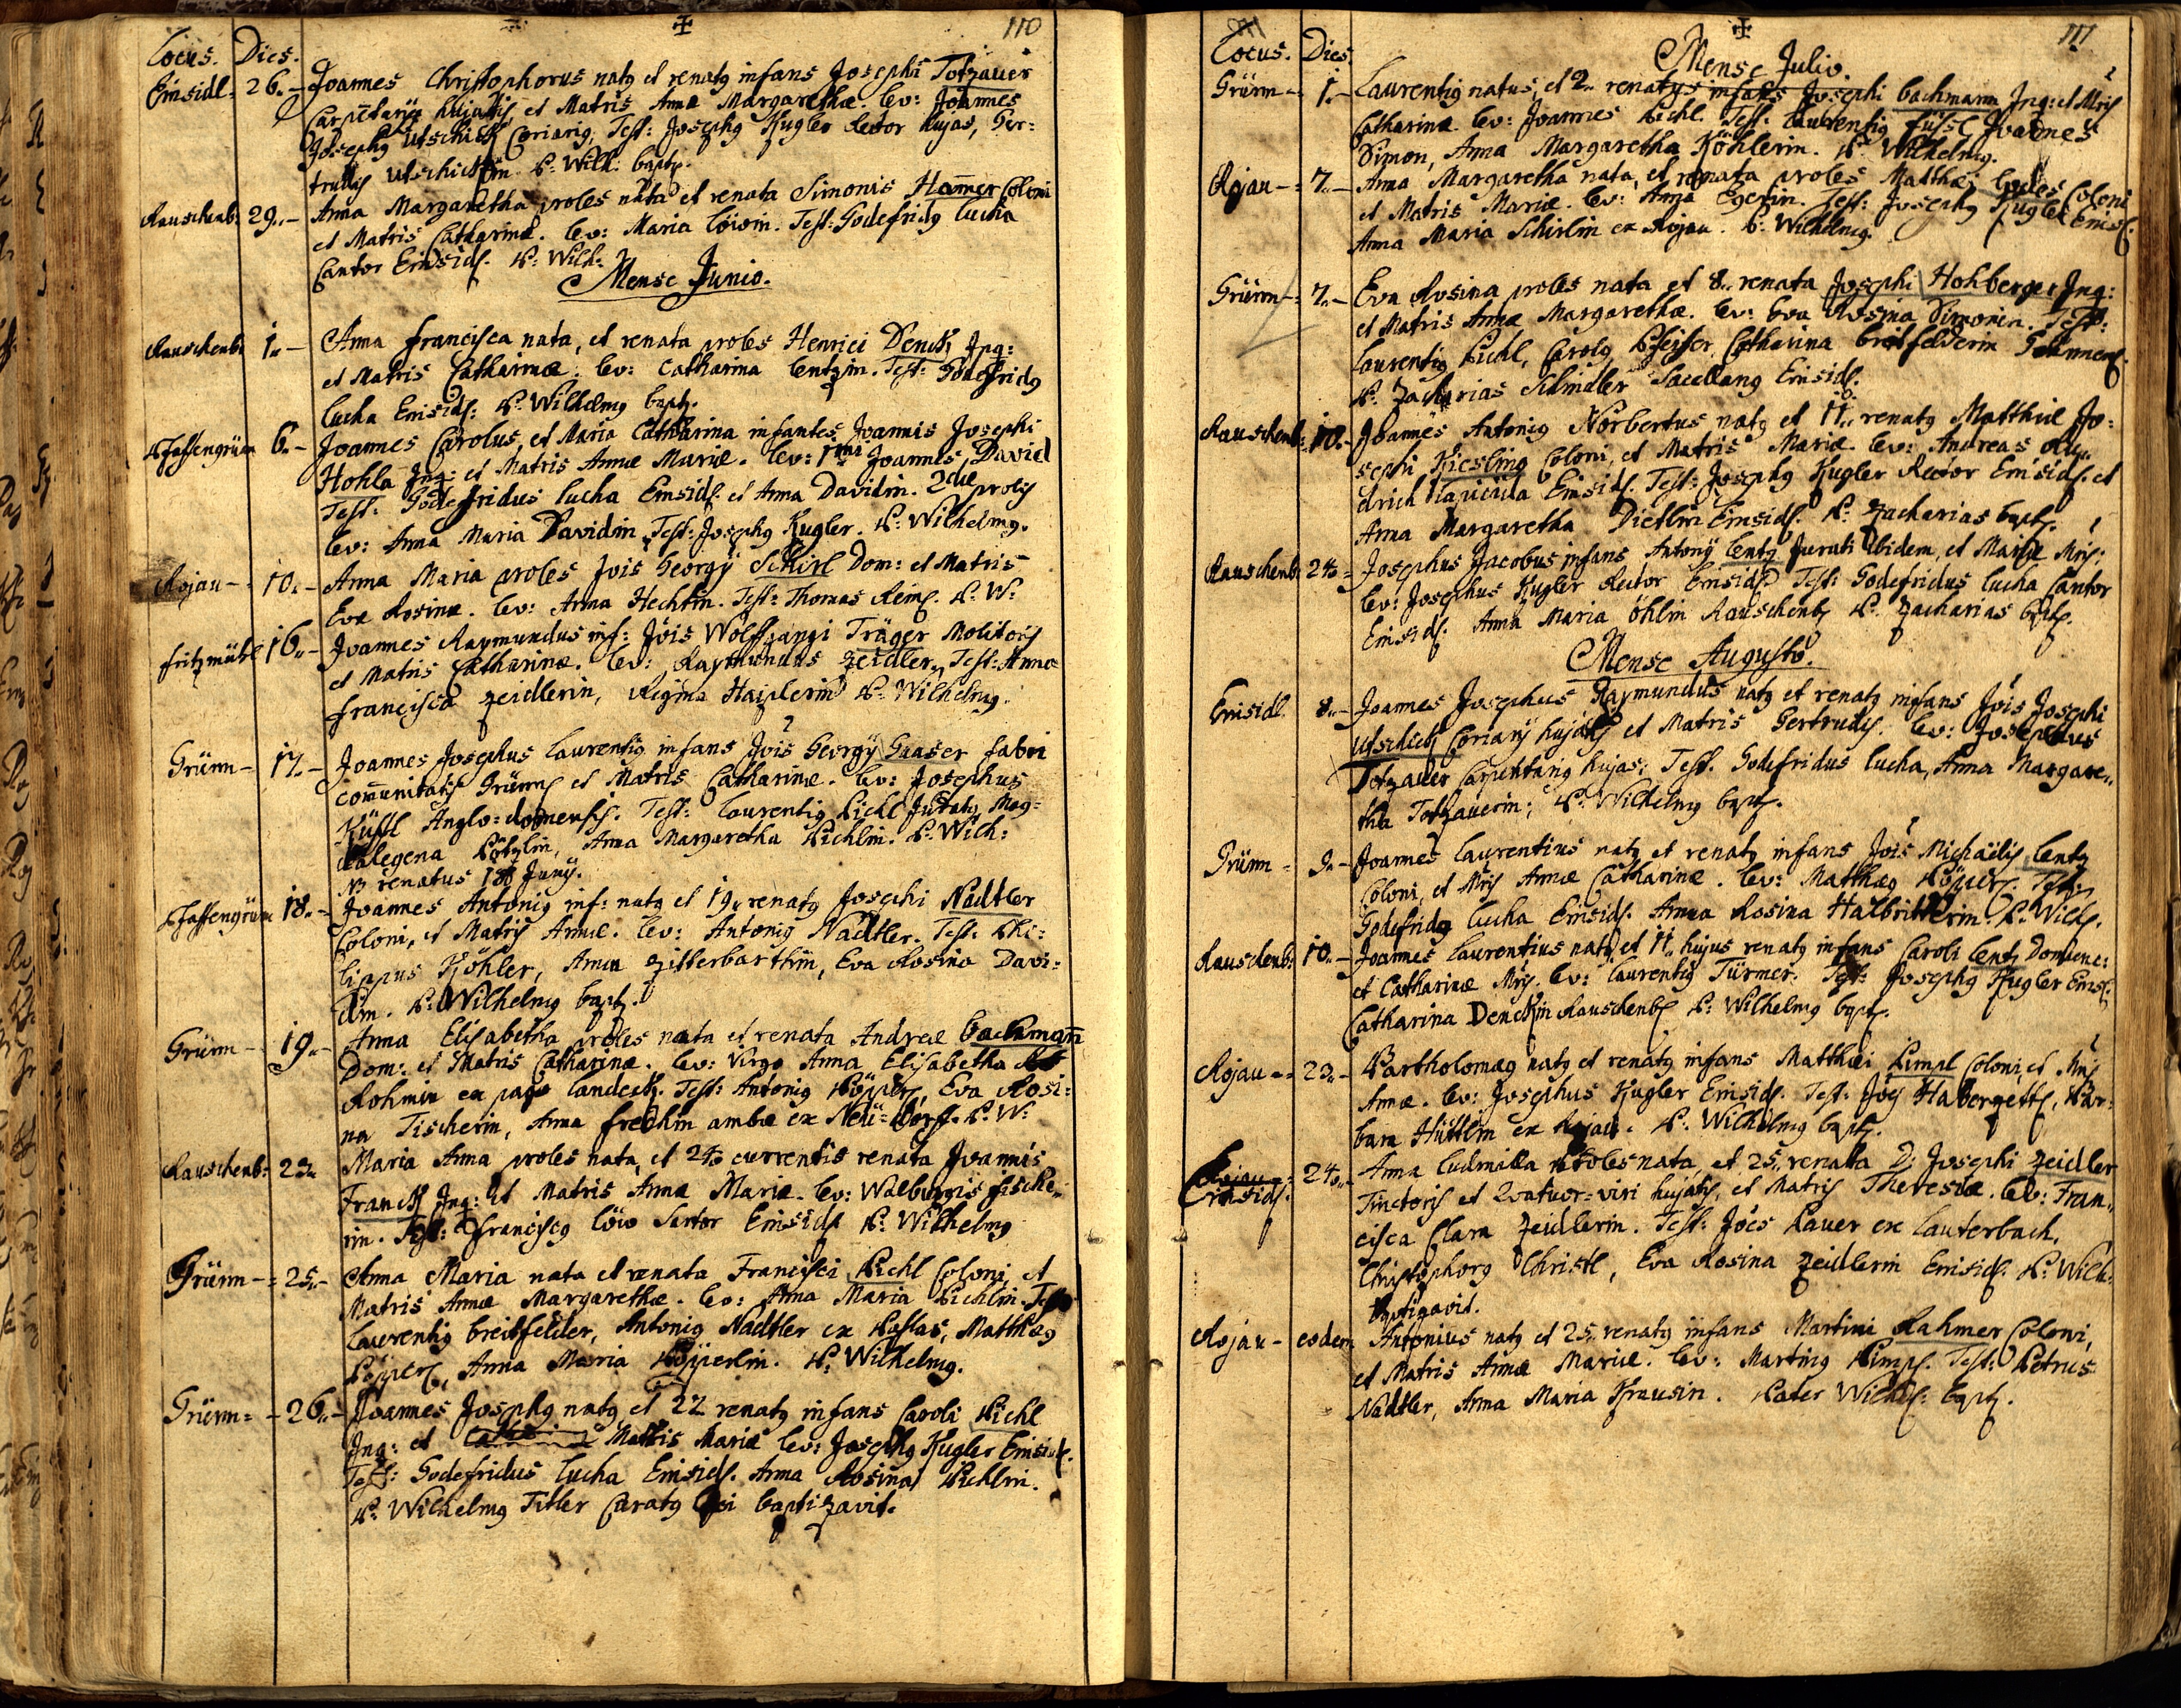 110
Locus. Dies.
Einsidl: 26.. Joannes Christophorus natq et renatq infans Josephi Totzauer
Carpentarij hujatis, et Matris Annæ Margarethæ. Lev: Joannes
Josephq Utschick Coriariq. Test: Josephq Kugler Rector hujas, Ger:
trudis Utschickin. P. Wilh: bapt.
Rauschenb: 29.. Anna Margaretha proles nata et renata Simonis Ham̄er Coloni
et Matris Catharinæ. Lev: Maria Löwin. Test: Godefridq Lucha
Cantor Einsidl. P: Wilh:
Mense Junio.
Rauschenb: 1.. Anna Francisca nata, et renata proles Henrici Denck Inq:
et Matris Catharinæ. Lev: Catharina Lentzin. Test: Godefridq
Lucha Einsidl: P: Wilhelmq bapt.
Pfaffengrün 6.. Joannes Carolus, et Maria Catharina infantes Joannis Josephi
Hohla Inq: et Matris Annæ Mariæ. Lev: 1mi Joannes David
Test: Godefridus Lucha Einsidl. et Anna Davidin. 2dæ prolis
Lev: Anna Maria Davidin, Test: Josephq Kugler. P: Wilhelmq.
Rojau 10.. Anna Maria proles Jois Georgij Schirl Dom: et Matris
Evæ Rosinæ. Lev: Anna Hechtin. Test: Thomas P: W:
Fritzmühl 16.. Joannes Raymundus inf: Jois Wolffgangi Träger Molitoris
et Matris Catharinæ. Lev: Raymundus Zeidler, Test: Anna
Francisca Zeidlerin, Regina P: Wilhelmq.
Grünn 17.. Joannes Josephus Laurentiq infans Jois Georgij Gaaser fabri
com̄unitatis Grünn, et Matris Catharinæ. Lev: Josephus
Küffl Anglo=domensis. Test: Laurentiq Pichl Juratq, Mag=
dalegena Anna Margaretha Pichlin. P: Wilh:
NB renatus 18 Junij.
Pfaffengrün 18.. Joannes Antoniq inf: natq et 19.. renatq Josephi Nadtler
Coloni, et Matris Annæ. Lev: Antoniq Nadtler. Test: Phi:
lippus Köhler, Anna Zitterbarthin, Eva Rosina Davi:
din. P: Wilhelmq bapt.
Grünn 19.. Anna Elisabetha proles nata et renata Andreæ Bachmann̄
Dom: et Matris Catharinæ. Lev: Virgo Anna Elisabetha
Rohmin ex pago Landeck. Test: Antoniq Eva Rosi:
na Tischerin, Anna Frechin ambæ ex Neü=dorf. P: W:
Rauschenb: 23.. Maria Anna proles nata, et 24.. currentis renata Joannis
Franck Inq: et Matris Annæ Mariæ. Lev: Walburgis Fische..
rin. Test: Franciscq Löw Sartor Einsidl. P: Wilhelmq
Grünn 25.. Anna Maria nata et renata Francisci Pichl Coloni, et
Matris Annæ Margarethæ. Lev: Anna Maria Pichlin. Test:
Laurentiq Breitfelder, Antoniq Nadtler ex Matthæq
Anna Maria P: Wilhelmq.
Grünn 26.. Joannes Josephq natq et 27 renatq infans Caroli Pichl
Inq: et Matris Mariæ Lev: Josephq Kugler Einsidl.
Test: Godefridus Lucha Einsidl. Anna Rosina Pichlin.
P: Wilhelmq Titler Curatq Loci baptizavit.
111
Locus. Dies.
Mense Julio.
Grünn 1.. Laurentiq natus, et 2.. renatus infans Josephi Bachmann Inq: et Mris
Catharinæ. Lev: Joannes Pichl. Test: Laurentiq Füssl Joannes
Simon, Anna Margaretha Köhlerin. P: Wilhelmq.
Rojau 7.. Anna Margaretha nata, et renata proles Matthæi Coloni
et Matris Mariæ. Lev: Anna Egerin. Test: Josephq Kugler Einsidl.
Anna Maria Schirlin ex Rojau. P: Wilhelmq.
Grünn 7.. Eva Rosina proles nata et 8.. renata Josephi Hohberger Inq:
et Matris Annæ Margarethæ. Lev: Eva Rosina Simonin. Test:
Laurentiq Pichl, Carolq Pfeiffer, Catharina Breitfelderin
P: Zacharias Schindler Sacellanq Einsidl.
Rauschenb: 10.. Joannes Antoniq Norbertus natq et 11.. renatq Matthiæ Jo:
sephi Kiesling Coloni, et Matris Mariæ. Lev: Andreas
drich Lapicida Einsidl. Test: Josephq Kugler Rector Einsidl. et
Anna Margaretha Dietlin Einsidl. P: Zacharias bapt.
Rauschenb: 24.. Josephus Jacobus infans Antonij Lentz Jurati ibidem, et Mariæ Mris:
Lev: Josephus Kugler Rector Einsidl. Test: Godefridus Lucha Cantor
Einsidl. Anna Maria Öhlin Rauschenb: P. Zacharias bapt.
Mense Augusto.
Einsidl. 8.. Joannes Josephus Raymundus natq et renatq infans Jois Josephi
Utschick Coriarij hujatis et Matris Gertrudis. Lev: Josephus
Totzauer Carpentariq hujas. Test. Godefridus Lucha, Anna Margare..
tha Totzauerin; P: Wilhelmq bapt.
Grünn 9.. Joannes Laurentius natq et renatq infans Jois Michaëlis Lentz
Coloni, et Mris Annæ Catharinæ. Lev: Matthæq Test:
Godefridq Lucha Einsidl. Anna Rosina Halbritterin. P: Wilh.
Rauschenb: 10.. Joannes Laurentius natq et 11.. hujus renatq infans Caroli Lentz
et Catharinæ Mris. Lev: Laurentiq Türmer. Test: Josephq Kugler Einsl.
Catharina Denckin Rauschenb: P: Wilhelmq bapt.
Rojau 23.. Bartholomæq natq et renatq infans Matthæi Pimpl Coloni, et Mris
Annæ. Lev: Josephus Kugler Einsidl. Test: Bar:
bara Hüttlin ex Rojau. P: Wilhelmq bapt.
Einsidl. 24.. Anna Ludmilla proles nata, et 25.. renata D: Josephi Zeidler
Tinctoris et Quatuor=viri hujatis, et Matris Theresiæ. Lev: Fran..
cisca Clara Zeidlerin. Test: Joes Bauer ex Lauterbach,
Christophorq Christl, Eva Rosina Zeidlerin Einsidl. P: Wilh:
bptizavit.
Rojau eodem Antonius natq et 25.. renatq infans Martini Rahmer Coloni,
et Matris Annæ Mariæ. Lev: Martinq Pimpl. Test: Petrus
Nadtler, Anna Maria Krausin. Pater Wilhel: bapt.